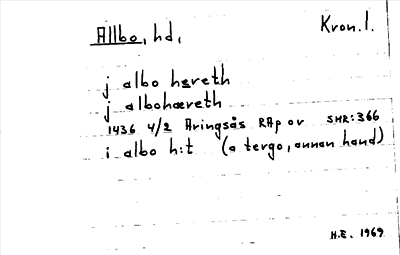 Allbo, hd, Kron. l.
j albo hereth
j albohæreth
1436 4/2 Aringsås RAp or SMR:366
i albo h:t (a tergo, annan hand)
H.E. 1969